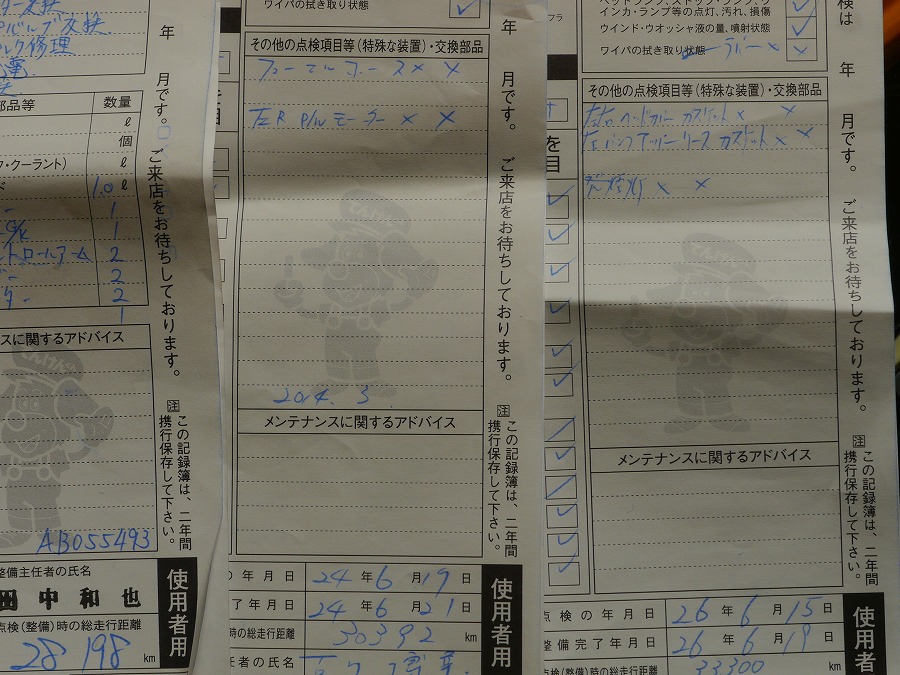 バルブ交換
ク修理
部品等 数量
ℓ
個
フ・クーラント) ℓ
1.0 ℓ
1
1
ントロールアーム 2
2
2
1
スに関するアドバイス
AB055493
整備主任者の氏名
田中和也
点検(整備)時の総走行距離
28198 km
使用者用
年 月です。 ご来店をお待ちしております。
注 この記録簿は、二年間
携行保存して下さい。
ワイパの拭き取り状態
その他の点検項目等(特殊な装置)・交換部品
フューエルホース × ×
左R P/W モーター × ×
2014. 3
メンテナンスに関するアドバイス
の年月日 24年6月19日
了年月日 24年6月21日
時の総走行距離 30392 km
任者の氏名
使用者用
年 月です。 ご来店をお待ちしております。
注 この記録簿は、二年間
携行保存して下さい。
ヘッドランプ、ストップ・ランプ、ウ
インカ・ランプ等の点灯、汚れ、損傷
ウインド・ウオッシャ液の量、噴射状態
ワイパの拭き取り状態 ラバー × ×
その他の点検項目等(特殊な装置)・交換部品
左右ヘッドカバーガスケット × ×
× ×
× ×
メンテナンスに関するアドバイス
点検の年月日 26年6月15日
整備完了年月日 26年6月19日
点検(整備)時の総走行距離 33300 km
使用者用
検は 年 月です。 ご来店をお待ちしております。
注 この記録簿は、二年間
携行保存して下さい。